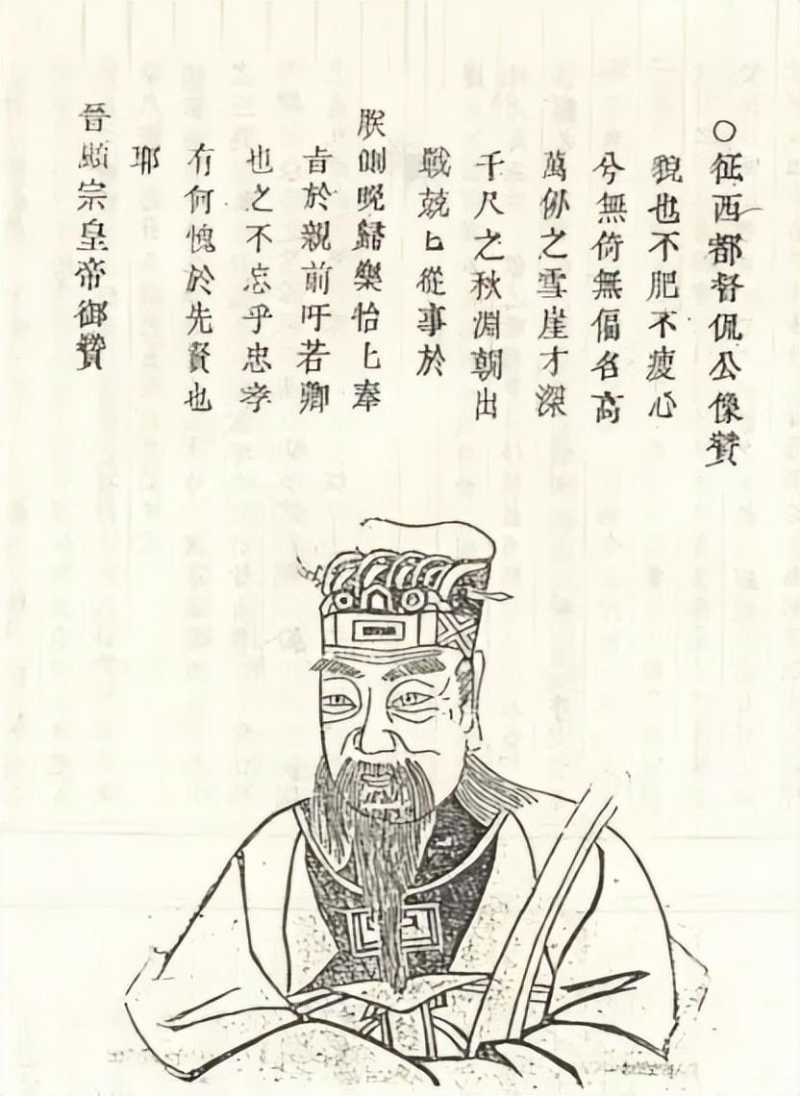 ○征西都督侃公像贊
貌也不肥不瘦心
兮無倚無偏名高
萬仞之雪崖才深
千尺之秋淵朝出
戰兢匕從事於
朕側晚歸樂怡匕奉
旨於親前吁若卿
也之不忘乎忠孝
有何愧於先賢也
耶
晉顯宗皇帝御贊